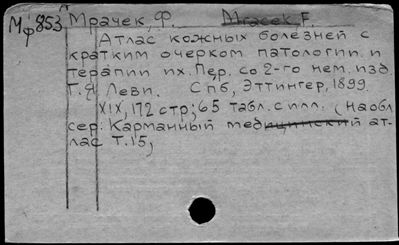 Мф853 Мрачек, Ф. Mracek, F.
Атлас кожных болезней с
кратким очерком патологии и
терапии их. Пер. со 2-го нем. изд.
Г. Я. Леви. Спб, Эттингер, 1899.
XIX, 172 стр; 65 табл. с илл. (На обл
сер: Карманный медицинский ат-
лас Т. 15,